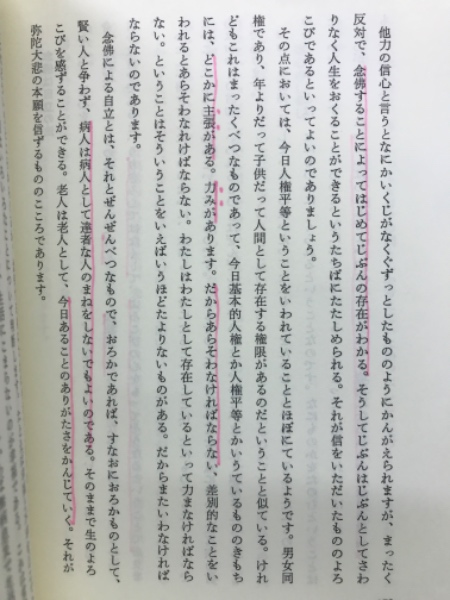 他力の信心と言うとなにかいくじがなくぐずっとしたもののようにかんがえられますが、まったく
反対で、念佛することによってはじめてじぶんの存在がわかる。そうしてじぶんはじぶんとしてさわ
りなく人生をおくることができるというたちばにたたしめられる。それが信をいただいたもののよろ
こびであるといってよいのでありましょう。
その点においては、今日人権平等ということをいわれていることとほぼにているようです。男女同
権であり、年よりだって子供だって人間として存在する権限があるのだということと似ている。けれ
どもこれはまったくべつなものであって、今日基本的人権とか人権平等とかいうているもののきもち
には、どこかに主張がある。力みがあります。だからあらそわなければならない、差別的なことをい
われるとあらそわなければならない。わたしはわたしとして存在しているといって力まなければなら
ない。ということはそういうことをいえばいうほどたよりないものがある。だからまたいわなければ
ならないのであります。
念佛による自立とは、それとぜんぜんべつなもので、おろかであれば、すなおにおろかものとして、
賢い人と争わず、病人は病人として達者な人のまねをしないでもよいのである。そのままで生のよろ
こびを感ずることができる。老人は老人として、今日あることのありがたさをかんじていく。それが
弥陀大悲の本願を信ずるもののこころであります。